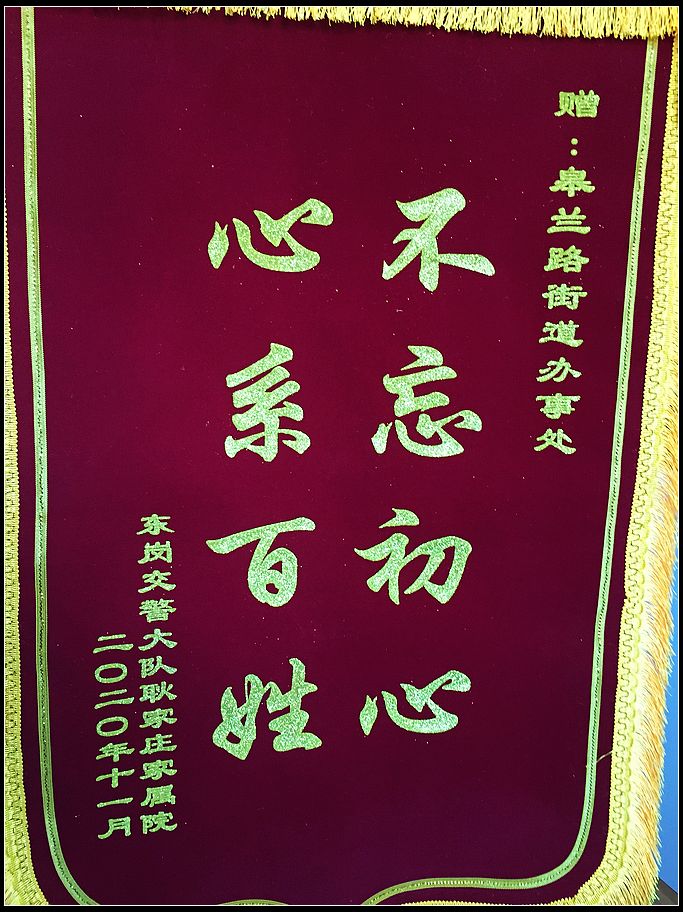 赠：皋兰路街道办事处
不忘初心
心系百姓
东岗交警大队耿家庄家属院
二〇二〇年十一月